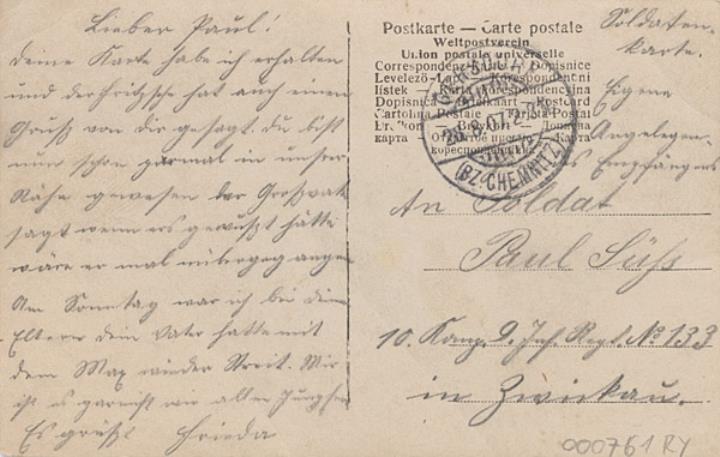 Lieber Paul!
Deine Karte habe ich erhalten
und der Fritzsche hat auch einen
Gruß von dir gesagt. du bist
nun schon einmal in unsrer
Nähe gewesen der Großvater
sagt wenn ers gewußt hätte
wäre er mal nübergegangen
Am Sonntag war ich bei deinen
Eltern dein Vater hatte mit
dem Max wieder Streit. Mir
ist es garnicht wie allen
Es grüßt Frieda
Postkarte — Carte postale
Weltpostverein
Union postale universelle
Correspondenz
Levelező-Lap — Korespondenční
lístek — Karta korespondencyjna
Dopisnica — Postcard
Cartolina Postale — Tarjeta Postal
карта — Открытое письмо — Карта
26.8.07.
(BZ. CHEMNITZ)
Soldaten-
karte.
Eigene
Angelegen-
Empfängers
An Soldat
Paul Süß
10. Komp. 9. Inf. Regt. No 133
in Zwickau.
000761RY